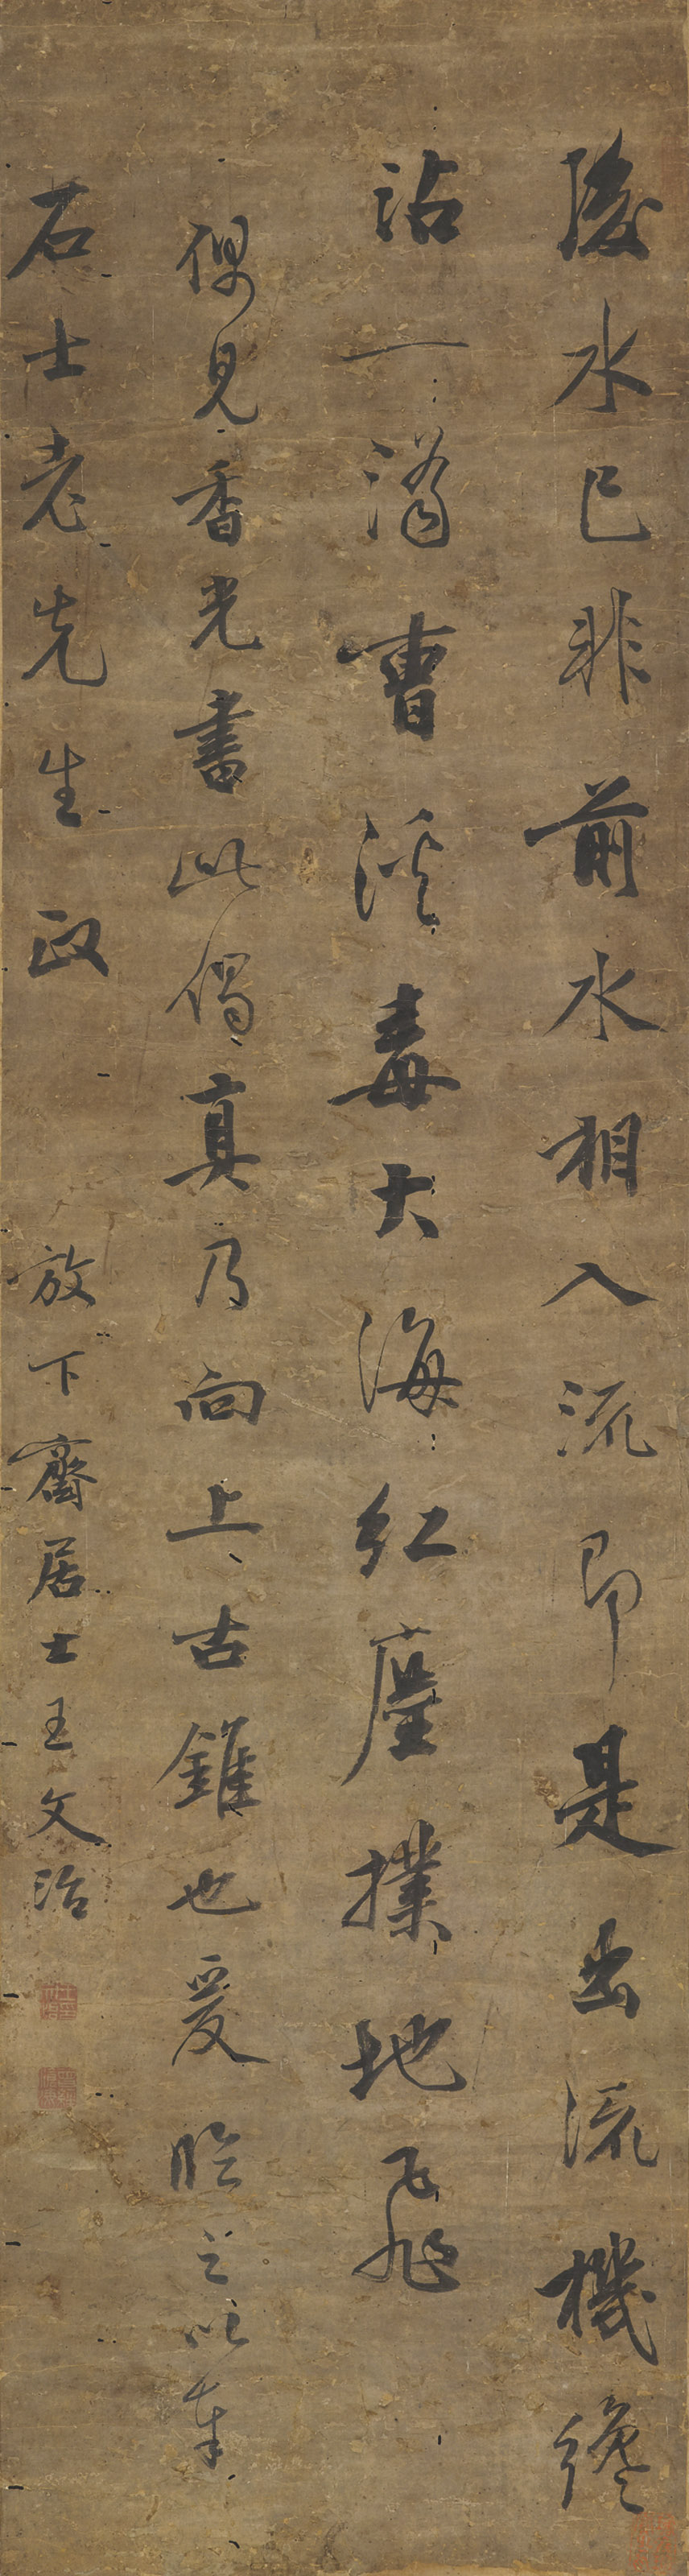 後水已非前水相入流即是出流機纔
沾一滴曹溪毒大海紅塵撲地飛
偶見香光書此偈真乃向上古錐也爰臨之以奉
石士老先生政 放下齋居士王文治